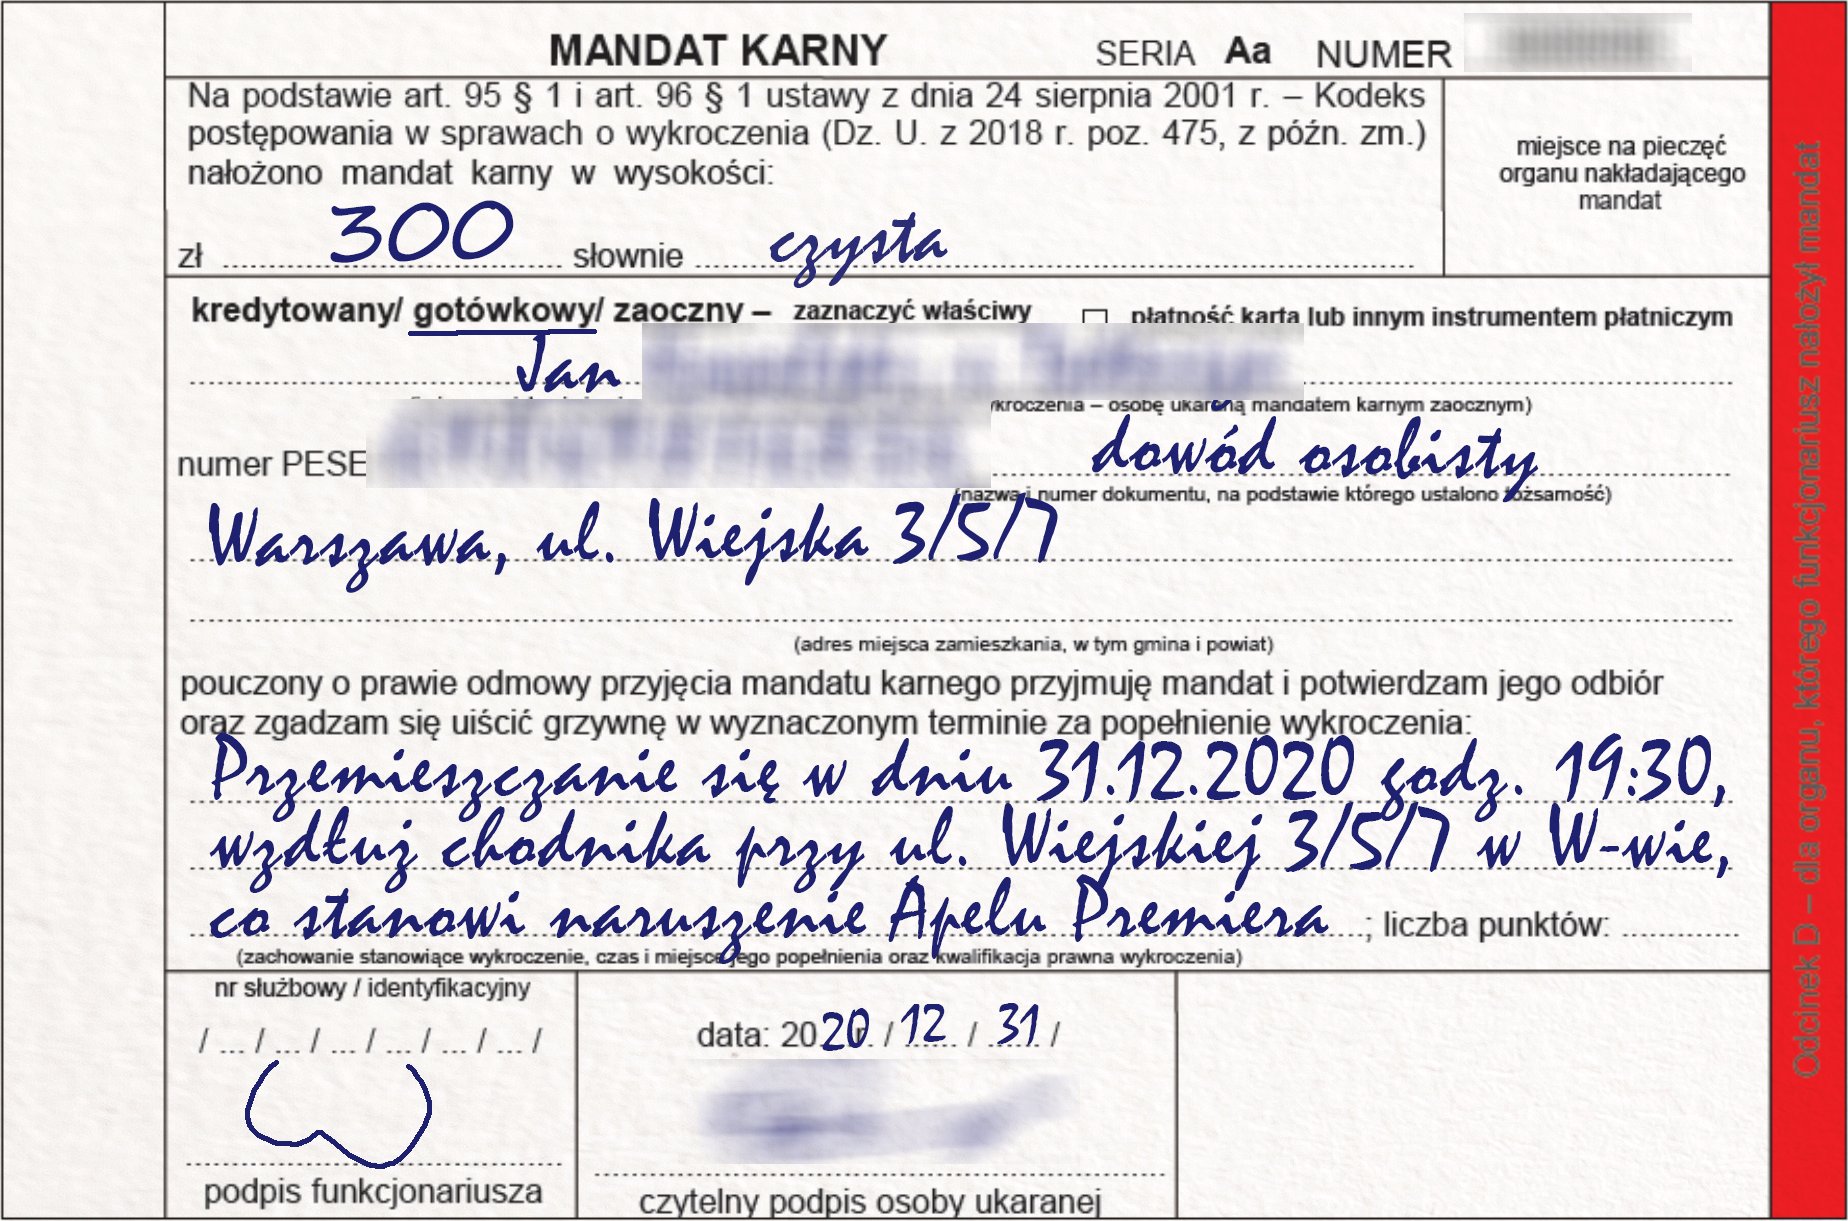 MANDAT KARNY SERIA Aa NUMER
Na podstawie art. 95 § 1 i art. 96 § 1 ustawy z dnia 24 sierpnia 2001 r. – Kodeks
postępowania w sprawach o wykroczenia (Dz. U. z 2018 r. poz. 475, z późn. zm.)
nałożono mandat karny w wysokości:
miejsce na pieczęć
organu nakładającego
mandat
zł 300 słownie czysta
kredytowany/ gotówkowy/ zaoczny – zaznaczyć właściwy płatność kartą lub innym instrumentem płatniczym
Jan
– osobę ukaraną mandatem karnym zaocznym)
numer dowód osobisty
(nazwa i numer dokumentu, na podstawie którego ustalono tożsamość)
Warszawa, ul. Wiejska 3/5/7
(adres miejsca zamieszkania, w tym gmina i powiat)
pouczony o prawie odmowy przyjęcia mandatu karnego przyjmuję mandat i potwierdzam jego odbiór
oraz zgadzam się uiścić grzywnę w wyznaczonym terminie za popełnienie wykroczenia:
Przemieszczanie się w dniu 31.12.2020 godz. 19:30,
wzdłuż chodnika przy ul. Wiejskiej 3/5/7 w W-wie,
co stanowi naruszenie Apelu Premiera ; liczba punktów:
(zachowanie stanowiące wykroczenie, czas i miejsce jego popełnienia oraz kwalifikacja prawna wykroczenia)
nr służbowy / identyfikacyjny
/ ... / ... / ... / ... / ... / ... /
podpis funkcjonariusza
data: 2020 r. / 12 / 31 /
czytelny podpis osoby ukaranej
Odcinek D – dla organu, którego funkcjonariusz nałożył mandat